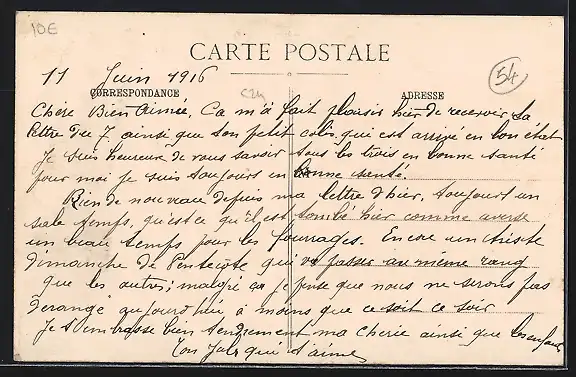 10E
CARTE POSTALE
54
11 Juin 1916
CORRESPONDANCE
ADRESSE
Chère Bien Aimée, Ca m'a fait plaisir hier de recevoir ta
lettre du 7 ainsi que ton petit colis qui est arrivé en bon état
Je suis heureux de vous savoir tous les trois en bonne santé
pour moi je suis toujours en bonne santé.
Rien de nouveau depuis ma lettre d'hier, toujours un
sale temps, qu'est ce qu'il est tombé hier comme averse
un beau temps pour les fourrages. Encore un triste
Dimanche de Pentecôte qui va passer au même rang
que les autres; malgré ça je pense que nous ne serons pas
dérangé aujourd'hui, à moins que ce soit ce soir
Je t'embrasse bien tendrement ma chérie ainsi que les enfants
Ton Jules qui t'aime